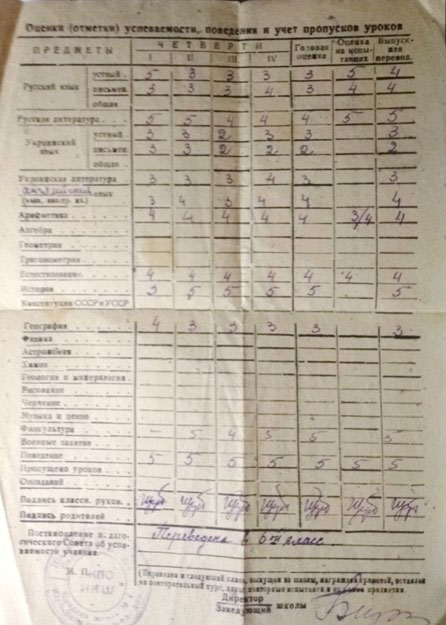 Оценки (отметки) успеваемости, поведения и учет пропусков уроков
ПРЕДМЕТЫ ЧЕТВЕРТИ Годовая оценка Оценка на испытаниях Выпуск. или перевод.
I II III IV
Русский язык устный 5 3 3 3 3 5 4
письмен. 3 3 3 4 3 4 4
общая
Русская литература 5 5 4 4 4 5 5
Украинский язык устный 3 3 2 3 3 3
письмен. 3 3 2 2 2 2
общая
Украинская литература 3 3 3 4 3 3
английский язык 3 4 3 4 4 4
Арифметика 4 4 4 4 4 3/4 4
Алгебра
Геометрия
Тригонометрия
Естествознание 4 4 4 4 4 4 4
История 3 5 5 5 5 5
Конституция СССР и УССР
География 4 3 3 3 3 3
Физика
Астрономия
Химия
Геология и минералогия
Рисование
Черчение
Музыка и пение
Физкультура 5 4 5 5 5
Военные занятия
Поведение 5 5 5 5 5 5 5
Пропущено уроков
Опозданий
Подпись классн. руков.
Подпись родителей
Постановление педагогического Совета об успеваемости учения Переведена в 6-й класс
М. П.
НКП
(Переведен в следующий класс, выпущен из школы, награжден грамотой, оставлен на повторительный курс, даны повторные испытания и по каким предметам
Директор
Заведующий школы